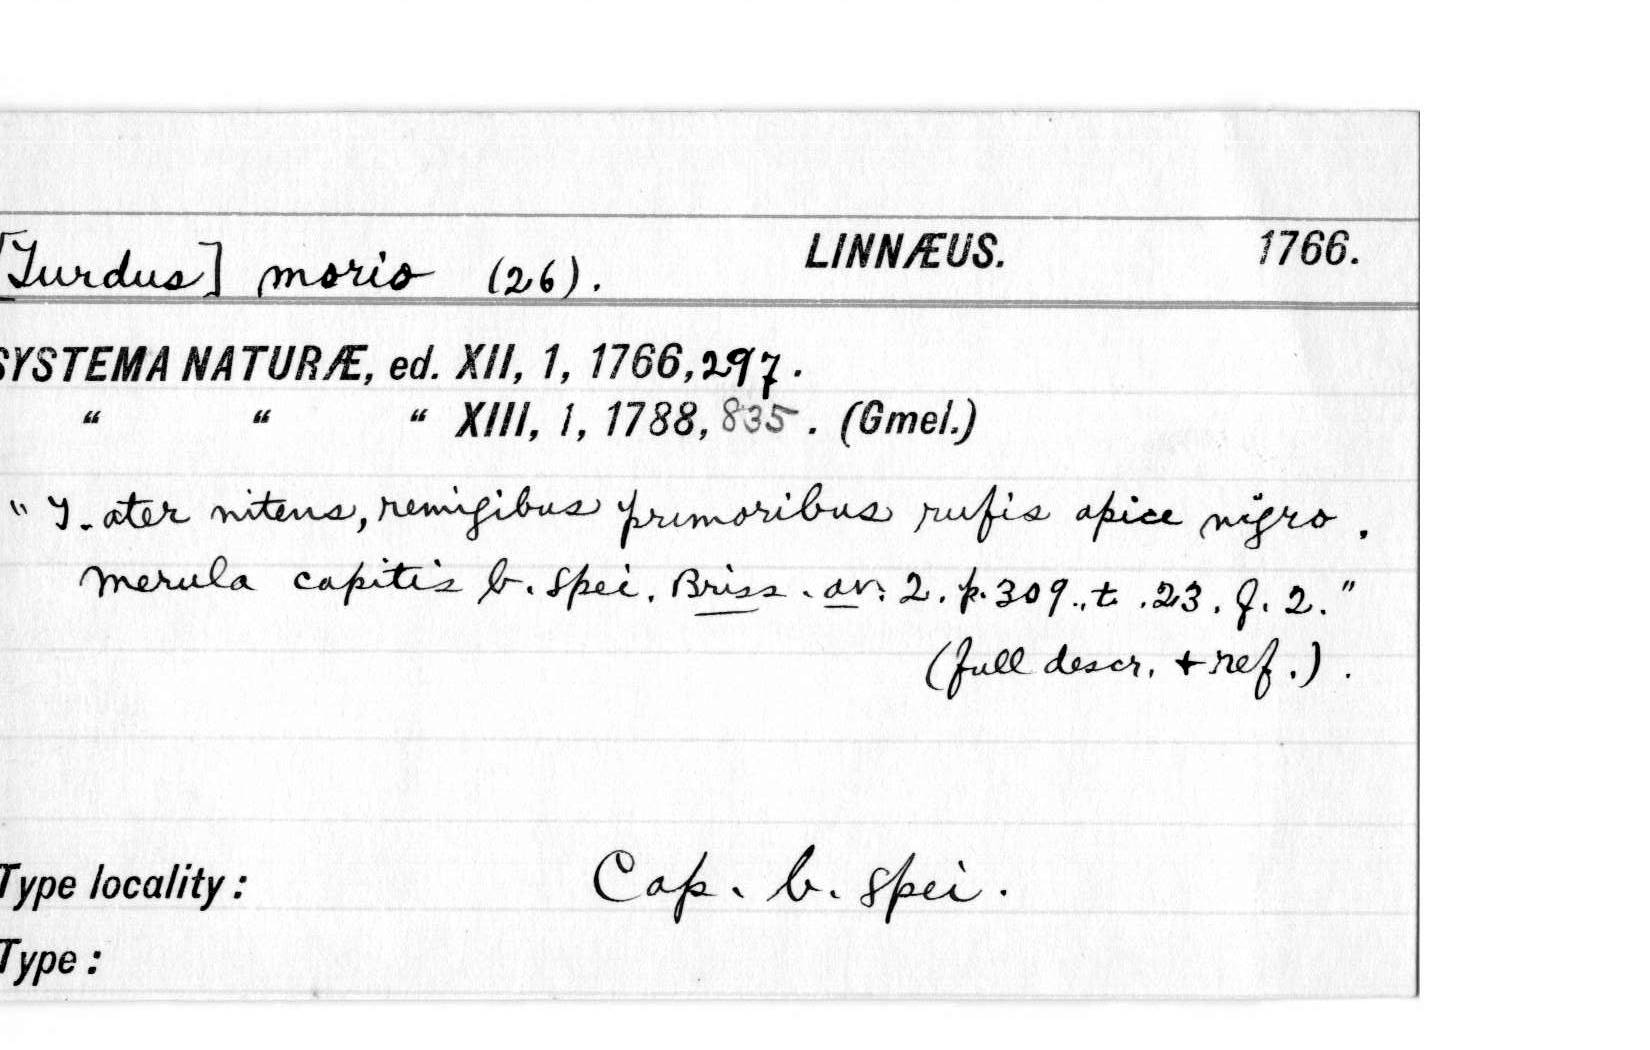 [Turdus] morio (26). LINNÆUS. 1766.
SYSTEMA NATURÆ, ed. XII, 1, 1766, 297.
“ “ “ XIII, 1, 1788, 835. (Gmel.)
"T. ater nitens, remigibus primoribus rufis apice nigro.
Merula capitis b. spei. Briss. av. 2. p. 309., t. 23. f. 2."
(full descr. + ref.).
Type locality: Cap. b. spei.
Type: